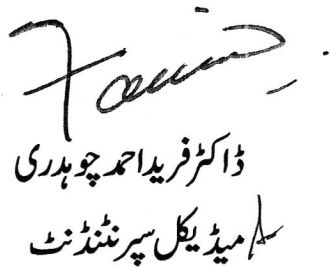 ڈاکٹر فرید احمد چوہدری
میڈیکل سپرنٹنڈنٹ